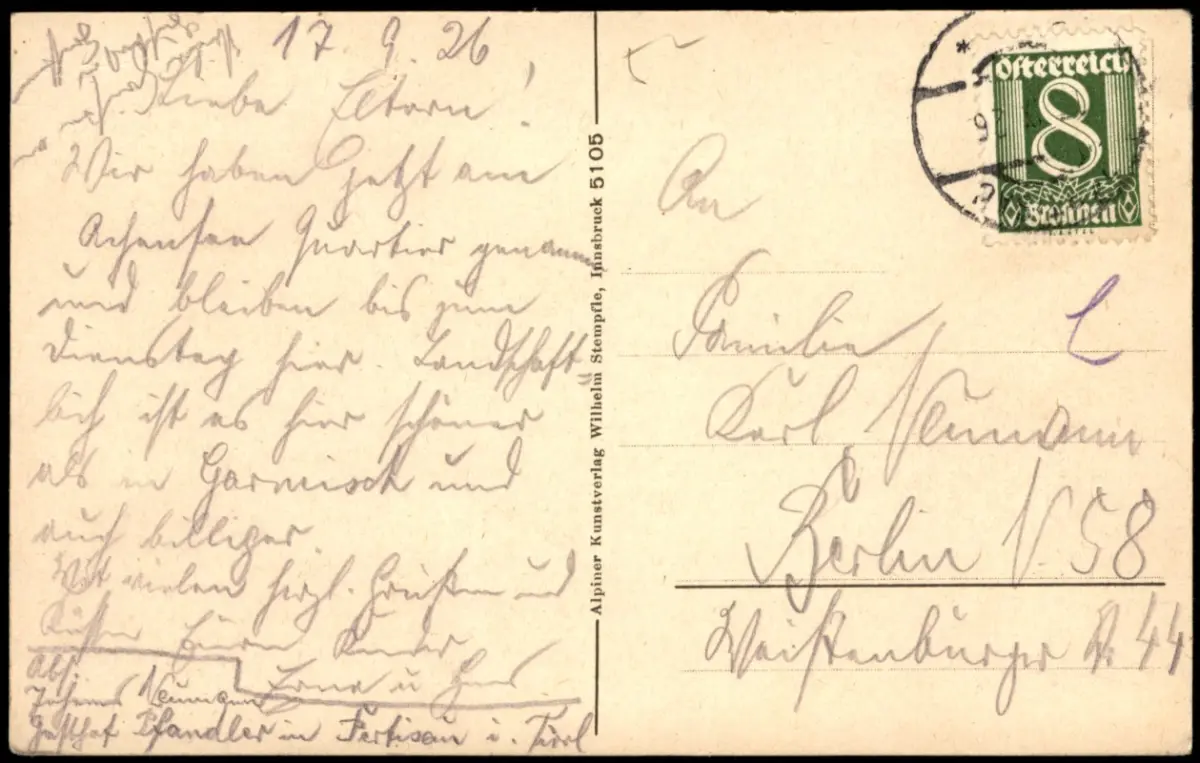 17. 9. 26
Liebe Eltern!
Wir haben jetzt am
Achensee Quartier genommen
und bleiben bis zum
Dienstag hier. Landschaft-
lich ist es hier schöner
als in Garmisch und
auch billiger.
Mit vielen herzl. Grüßen und
Küssen Eure Kinder
Erna u Hans
Abs.
Neumann
Gasthof Pfandler in Pertisau i. Tirol
Alpiner Kunstverlag Wilhelm Stempfle, Innsbruck 5105
Österreich
8
Groschen
An
Familie
Karl Neumann
Berlin N. 58
Weißenburger St. 44